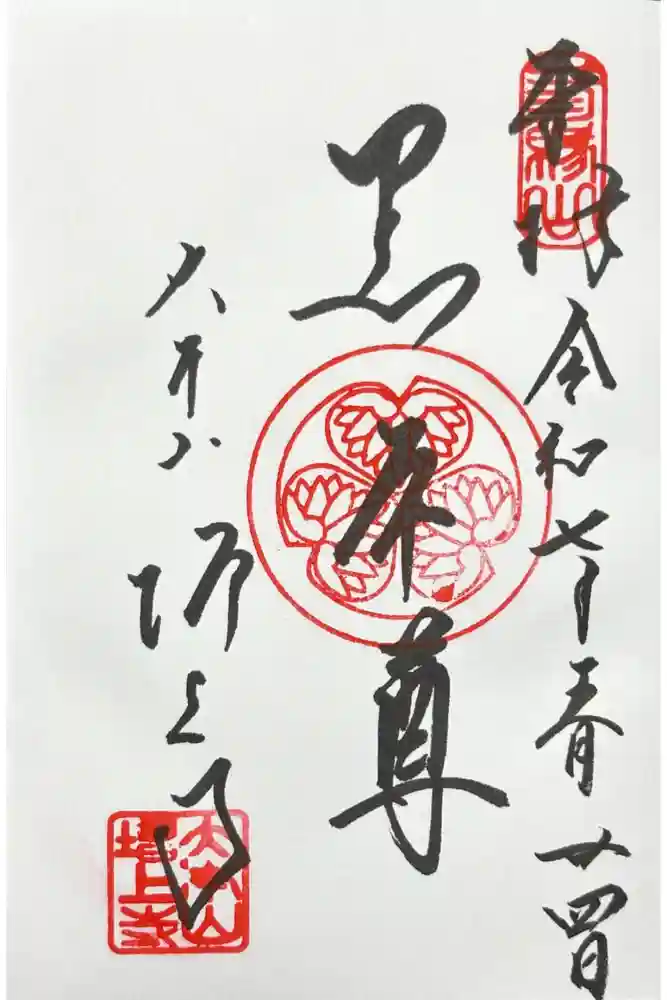 奉拝
令和七年春廿四日
黒本尊
大本山
増上寺
大本山
増上寺